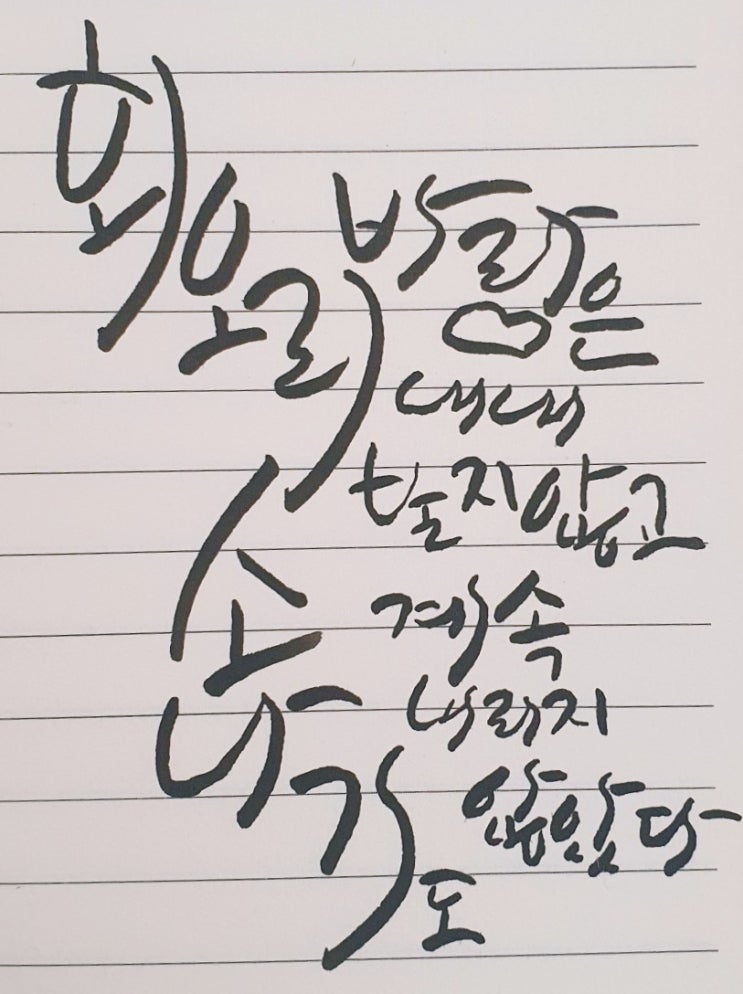 회오리
바람은
내내
불지않고
소나기도
계속
내리지
않았다